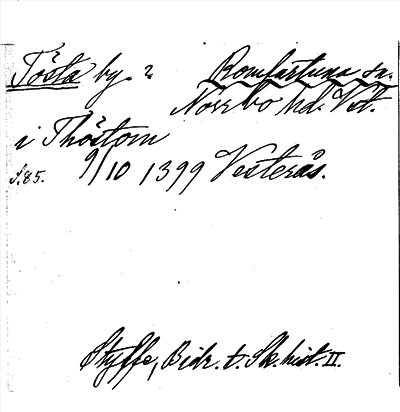 Tösta by. ? Romfartuna sn.
Norrbo hd. Vst.
i Thöstom
s.85. 9/10 1399 Vesterås.
Styffe, Bidr. t. Sk. hist. II.